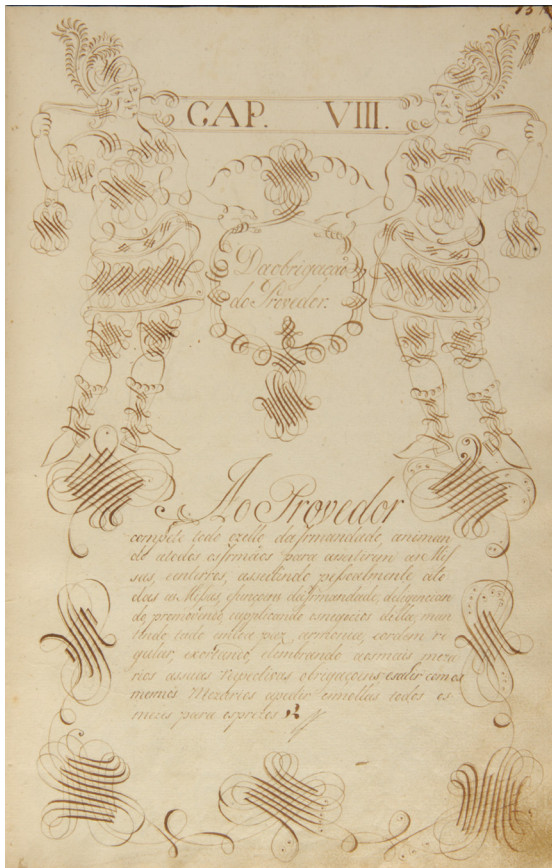 CAP. VIII.
Da obrigação
do Provedor.
Ao Provedor
compete todo ozello da Irmandade, animan
do atodos os Irmãos para assistirem as Mes
sas, eenterros, assistindo pessoalmente ato
das as Mesas, efuncoens da Irmandade, deligencian
do, promovendo, eapplicando osnegocios della, man
tendo tudo paz, armonia, eordem re
gular, exortando, elembrando aosmais meza
rios assuas respectivas obregaçoens esahir comos
mesmos Mezarios apedir esmollas todos os
mezes para ospretos